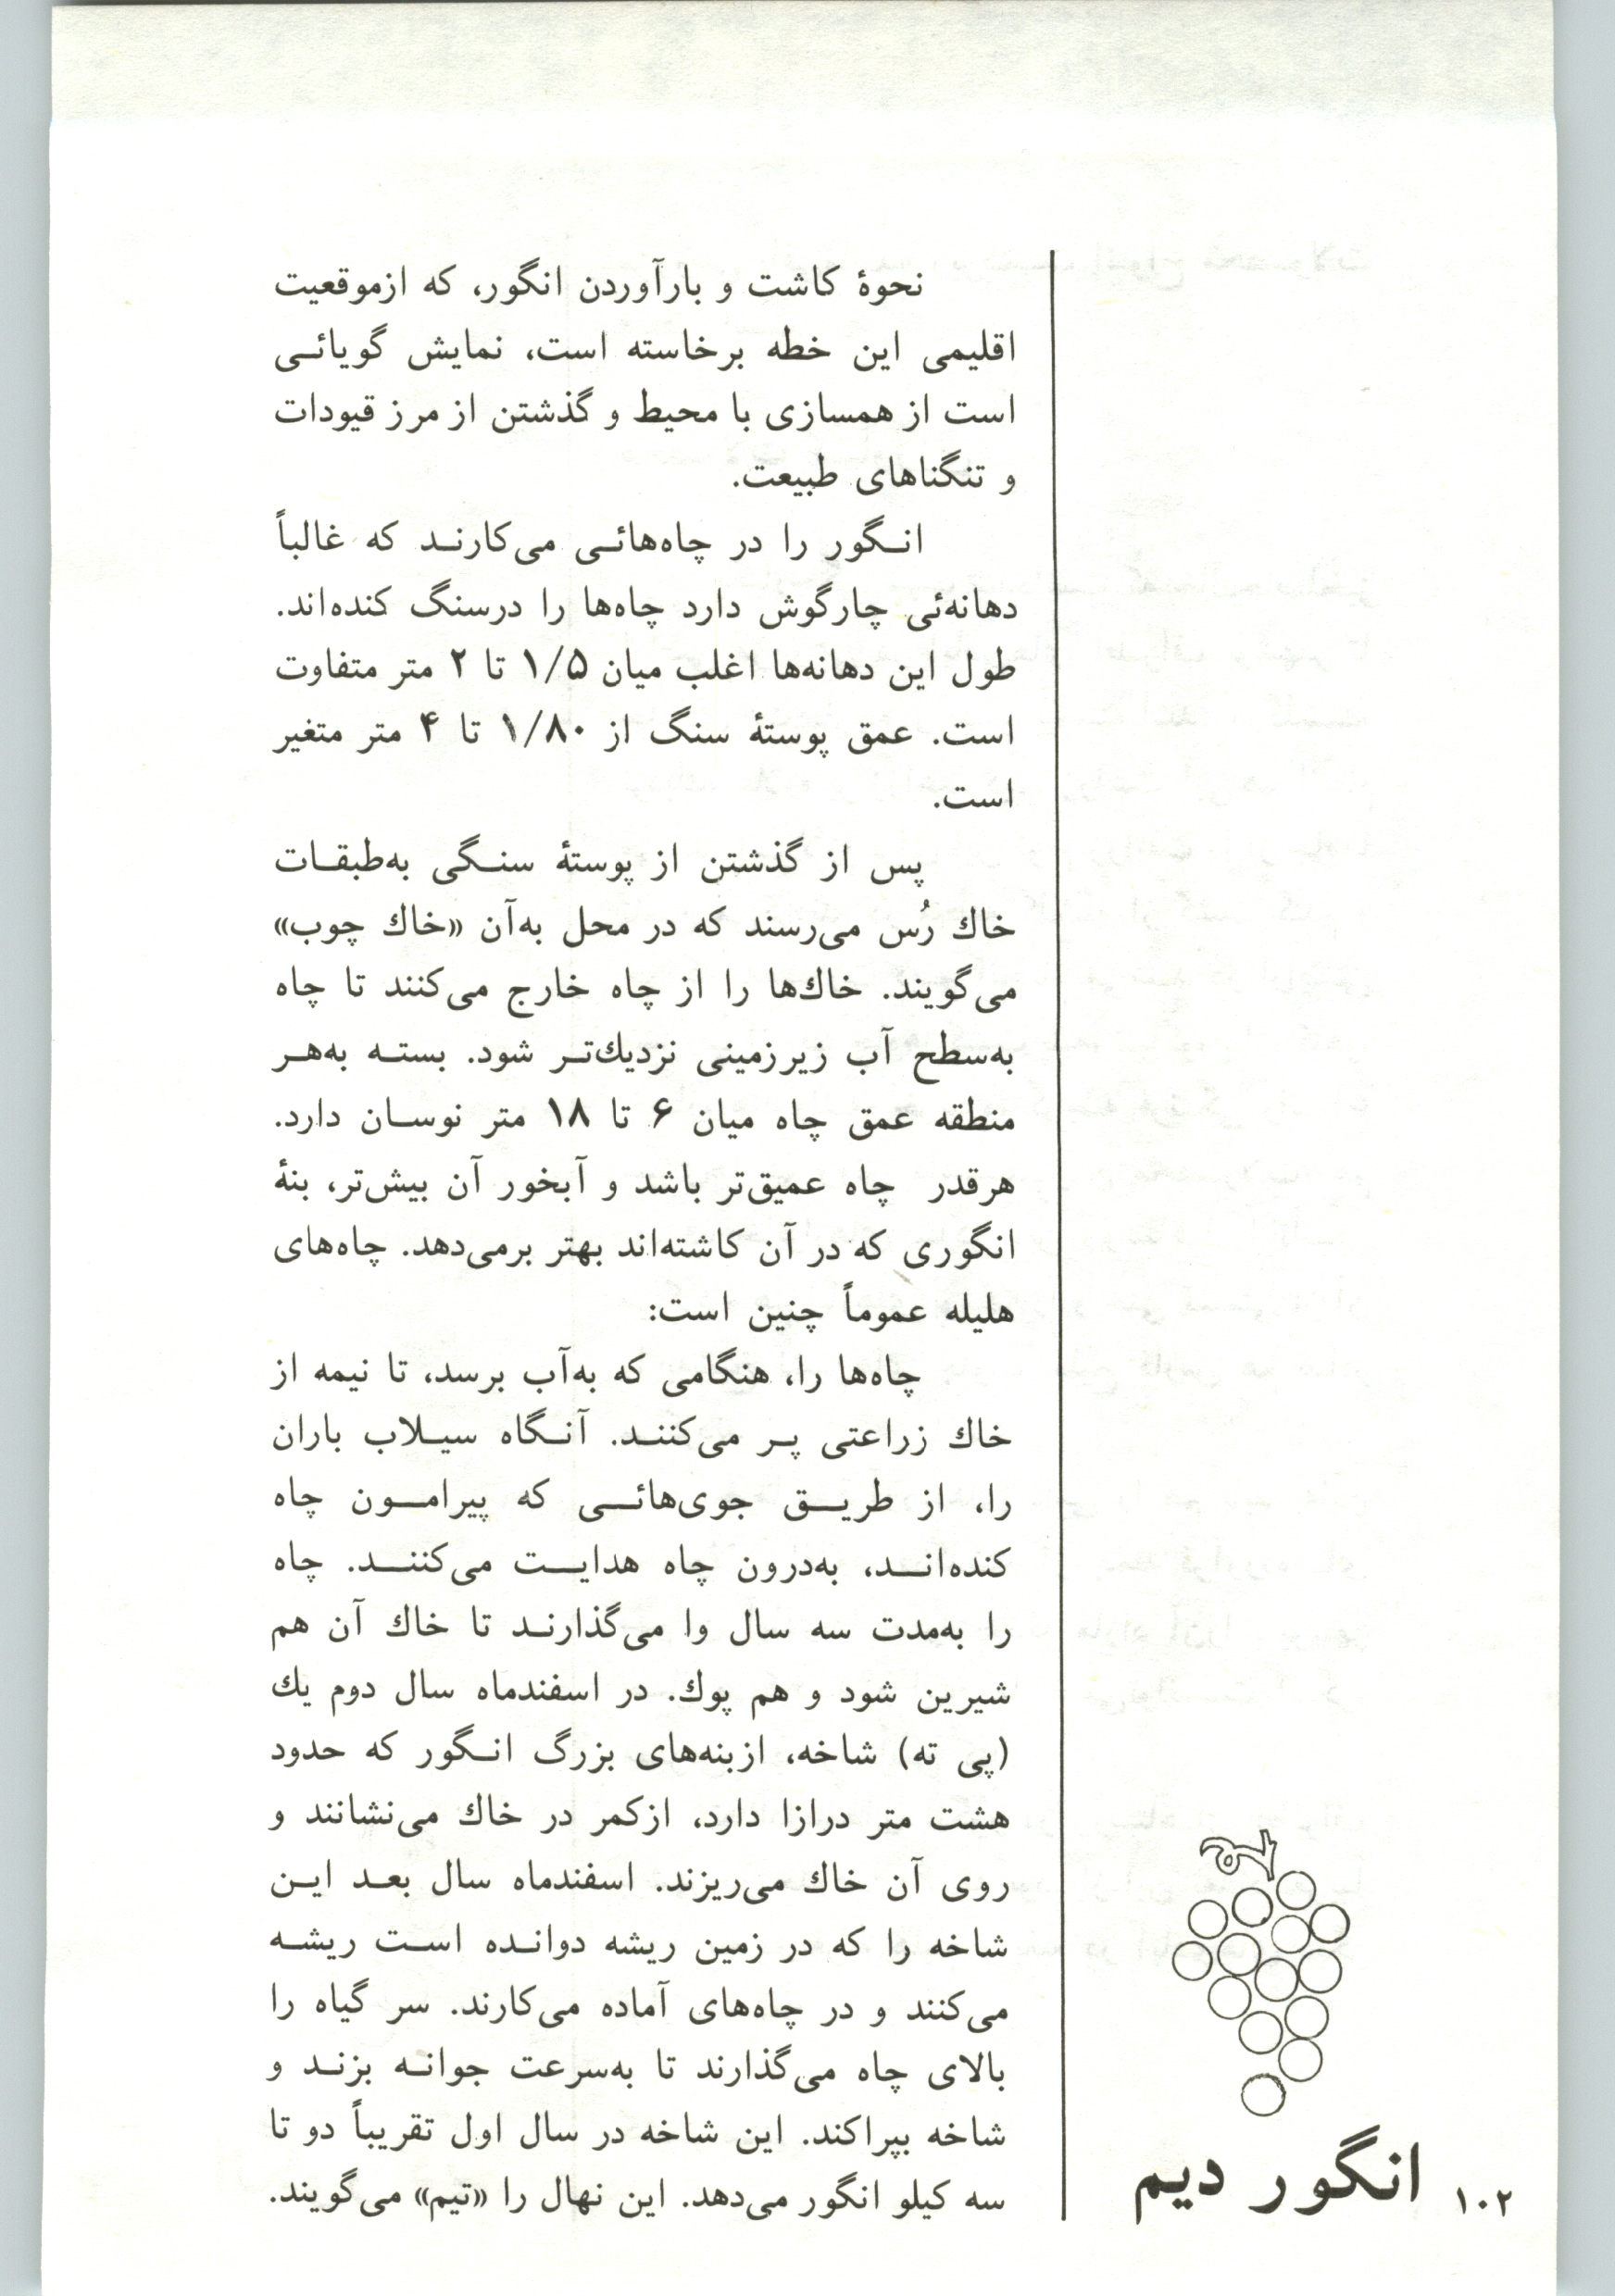 نحوهٔ کاشت و بارآوردن انگور، که ازموقعیت
اقلیمی این خطه برخاسته است، نمایش گویائی
است از همسازی با محیط و گذشتن از مرز قیودات
و تنگناهای طبیعت.
انگور را در چاه‌هائی می‌کارند که غالباً
دهانه‌ئی چارگوش دارد چاه‌ها را درسنگ کنده‌اند.
طول این دهانه‌ها اغلب میان ۱/۵ تا ۲ متر متفاوت
است. عمق پوستهٔ سنگ از ۱/۸۰ تا ۴ متر متغیر
است.
پس از گذشتن از پوستهٔ سنگی به‌طبقات
خاك رُس می‌رسند که در محل به‌آن «خاك چوب»
می‌گویند. خاك‌ها را از چاه خارج می‌کنند تا چاه
به‌سطح آب زیرزمینی نزدیك‌تر شود. بسته به‌هر
منطقه عمق چاه میان ۶ تا ۱۸ متر نوسان دارد.
هرقدر چاه عمیق‌تر باشد و آبخور آن بیش‌تر، بنهٔ
انگوری که در آن کاشته‌اند بهتر برمی‌دهد. چاه‌های
هلیله عموماً چنین است:
چاه‌ها را، هنگامی که به‌آب برسد، تا نیمه از
خاك زراعتی پر می‌کنند. آنگاه سیلاب باران
را، از طریق جوی‌هائی که پیرامون چاه
کنده‌اند، به‌درون چاه هدایت می‌کنند. چاه
را به‌مدت سه سال وا می‌گذارند تا خاك آن هم
شیرین شود و هم پوك. در اسفندماه سال دوم یك
(پی ته) شاخه، ازبنه‌های بزرگ انگور که حدود
هشت متر درازا دارد، ازکمر در خاك می‌نشانند و
روی آن خاك می‌ریزند. اسفندماه سال بعد این
شاخه را که در زمین ریشه دوانده است ریشه
می‌کنند و در چاه‌های آماده می‌کارند. سر گیاه را
بالای چاه می‌گذارند تا به‌سرعت جوانه بزند و
شاخه بپراکند. این شاخه در سال اول تقریباً دو تا
سه کیلو انگور می‌دهد. این نهال را «تیم» می‌گویند.
۱۰۲ انگور دیم